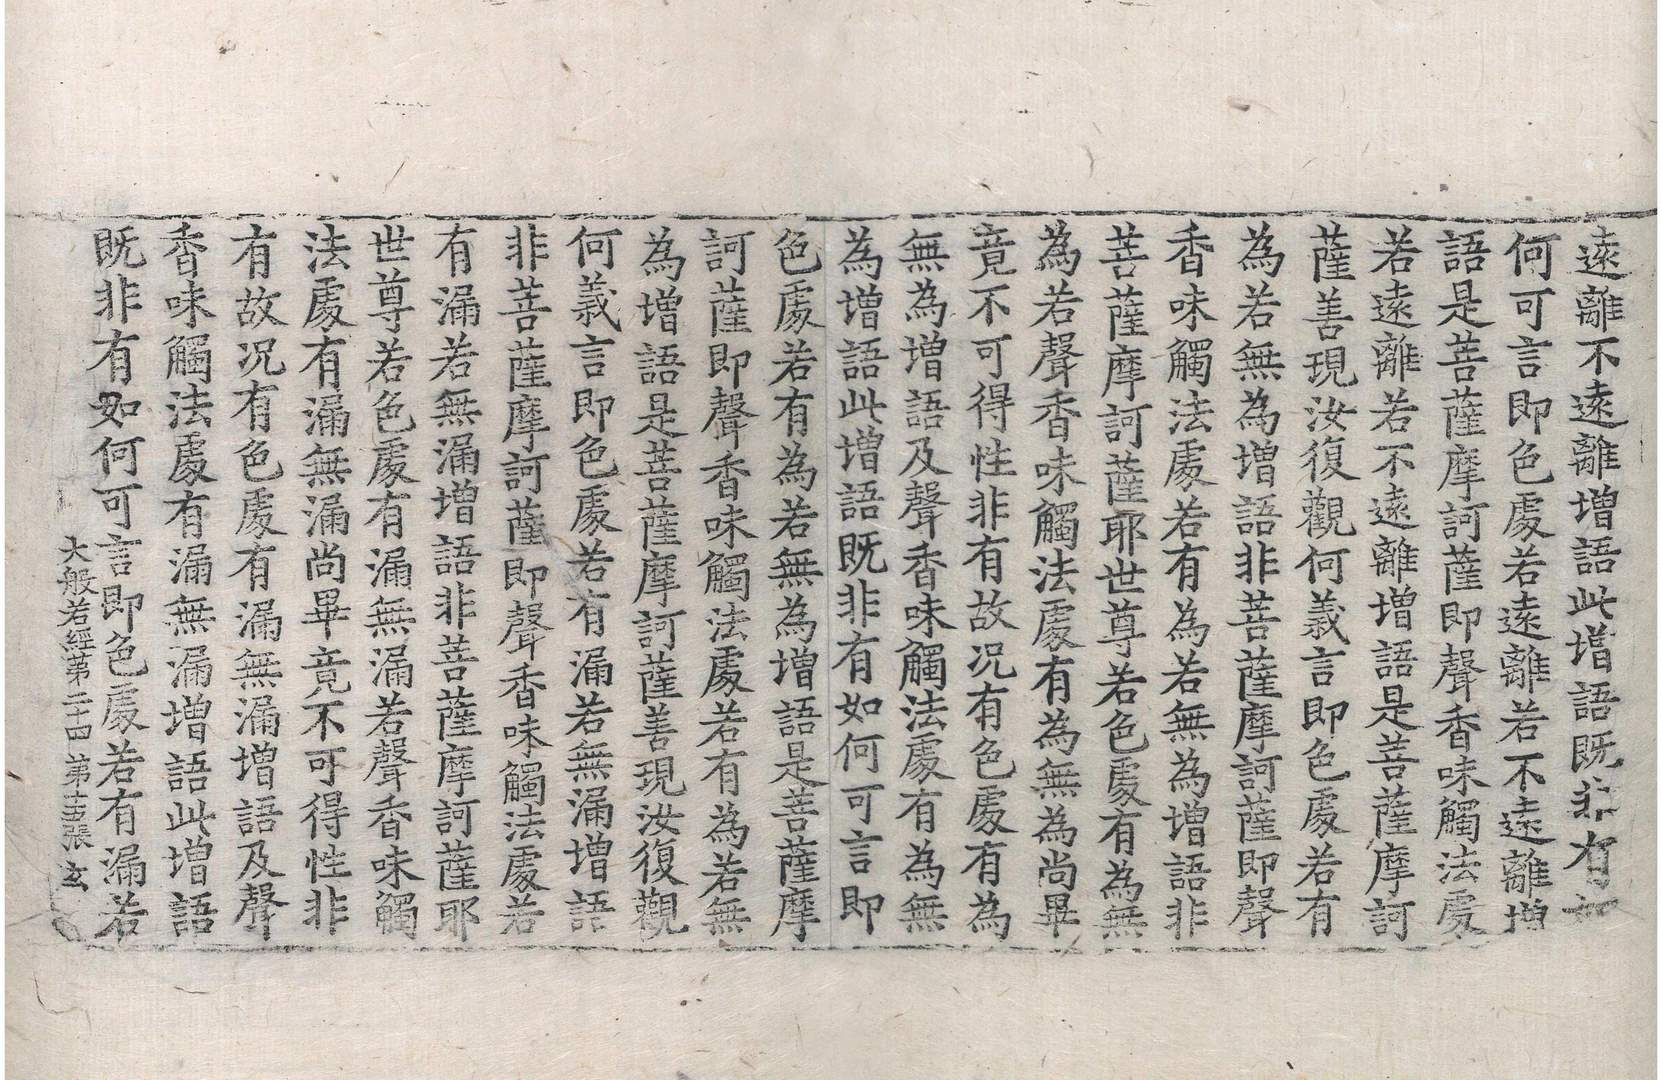 遠離不遠離增語此增語既非有
何可言即色處若遠離若不遠離增
語是菩薩摩訶薩即聲香味觸法處
若遠離若不遠離增語是菩薩摩訶
薩善現汝復觀何義言即色處若有
為若無為增語非菩薩摩訶薩即聲
香味觸法處若有為若無為增語非
菩薩摩訶薩耶世尊若色處有為無
為若聲香味觸法處有為無為尚畢
竟不可得性非有故況有色處有為
無為增語及聲香味觸法處有為無
為增語此增語既非有如何可言即
色處若有為若無為增語是菩薩摩
訶薩即聲香味觸法處若有為若無
為增語是菩薩摩訶薩善現汝復觀
何義言即色處若有漏若無漏增語
非菩薩摩訶薩即聲香味觸法處若
有漏若無漏增語非菩薩摩訶薩耶
世尊若色處有漏無漏若聲香味觸
法處有漏無漏尚畢竟不可得性非
有故況有色處有漏無漏增語及聲
香味觸法處有漏無漏增語此增語
既非有如何可言即色處若有漏若
大般若經第二十四 第 張 玄